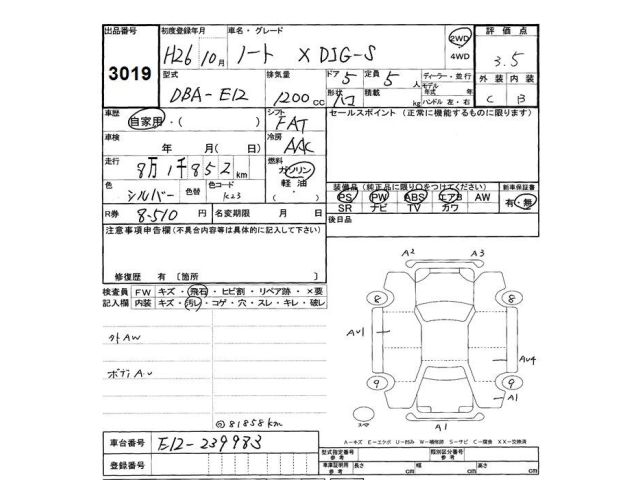 出品番号
3019
初度登録年月
H26年10月
車名・グレード
ノート X DIG-S
2WD
4WD
評価点
3.5
型式
DBA-E12
排気量
1200 CC
ドア 5
定員 5 人
形状 ハコ
積載 kg
ディーラー・並行
モデル年式 年
ハンドル 左・右
外装 内装
C B
車歴
自家用・( )
シフト
FAT
セールスポイント (正常に機能するものに限ります)
車検
年 月( 日)
冷房
AAC
走行
8万1千852km
燃料
ガソリン
軽油
( )
色
シルバー
色替
色コード
K23
装備品(純正品に限り○をつけてください)
PS PW ABS エアB AW
SR ナビ TV カワ
新車保証書
有・無
R券 8,510 円
名変期限 月 日
後日品
注意事項申告欄(不具合内容等は具体的に記入して下さい)
修復歴 有 〔箇所 〕
検査員 FW キズ・飛石・ヒビ割・リペア跡・×要
記入欄 内装 キズ・汚レ・コゲ・穴・スレ・キレ・破レ
外AW
ボディA.U
◎81858km
A2 A3
8 8
AU1
AU4
9 9
A1
スペア
A1
A−キズ E−エクボ U−凹み W−補修跡 S−サビ C−腐食 XX−交換済
車台番号
E12-239983
登録番号
型式指定番号
参考
類別区分番号
参考
車庫証明用
参考
長さ cm
幅 cm
高さ cm